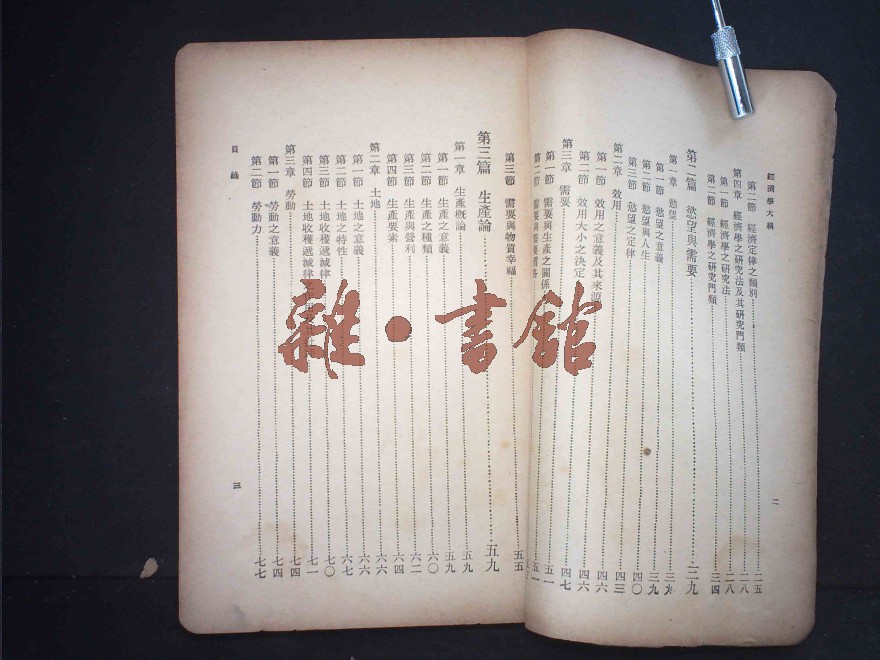 經濟學大綱
二
第二節 經濟定律之類別……二五
第四章 經濟學之研究法及其研究門類……二八
第一節 經濟學之研究法……二八
第二節 經濟學之研究門類……三四
第二篇 慾望與需要……三九
第一章 慾望……三九
第一節 慾望之意義……三九
第二節 慾望與人生……四〇
第三節 慾望之定律
第二章 效用……四三
第一節 效用之意義及其來源……四六
第二節 效用大小之決定……四六
第三章 需要……四七
第一節 需要與生產之關係……五一
第二節 需要與……五一
第三節 需要與物質幸福……五五
第三篇 生產論……五九
第一章 生產概論……五九
第一節 生產之意義……五九
第二節 生產之種類……六〇
第三節 生產與營利……六二
第四節 生產要素……六四
第二章 土地……六六
第一節 土地之意義……六六
第二節 土地之特性……六七
第三節 土地收穫遞減律……七〇
第四節 土地收穫遞減律……七一
第三章 勞動……七四
第一節 勞動之意義……七四
第二節 勞動力……七七
目錄
三
雜·書館